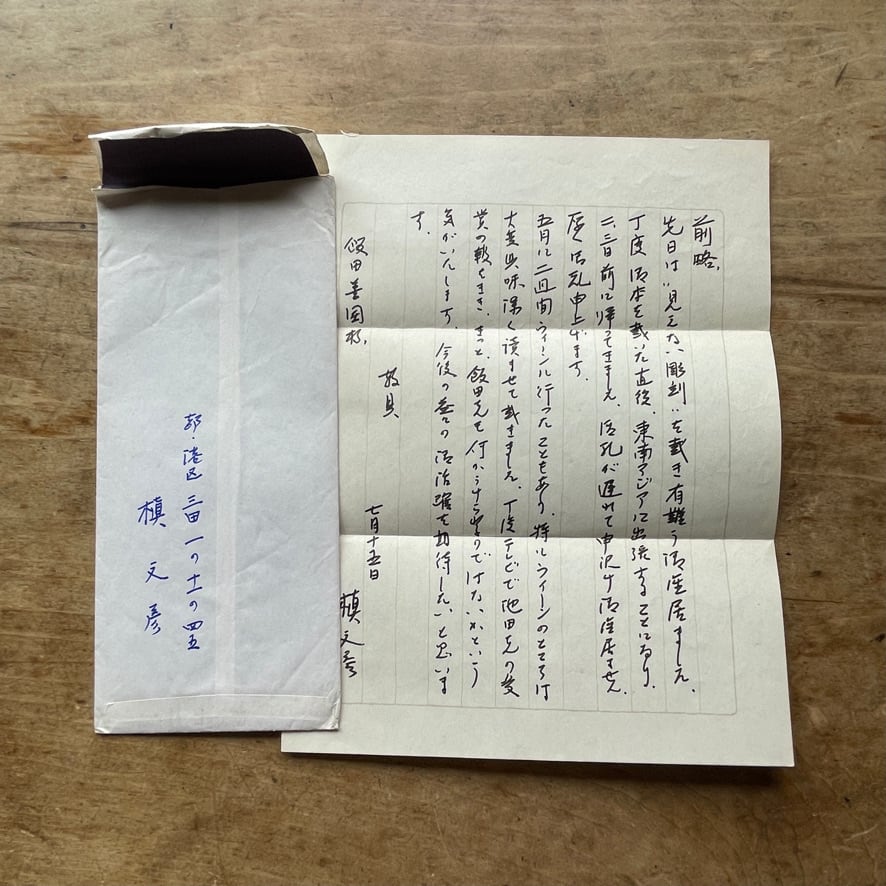 前略、
先日は〝見えない彫刻〟を戴き有難う御座居ました。
丁度御本を戴いた直後、東南アジアに出張することになり、
二、三日前に帰ってきました。御礼が遅れて申訳け御座居ません。
厚く御礼申上げます。
五月に二週間ウィーンに行ったこともあり、特にウィーンのところは
大変興味深く読ませて戴きました。丁度テレビで池田氏の受
賞の報をきき、きっと、飯田氏も何かうけられるのではないかという
気がいたします。今後の益々の御活躍を期待したいと思いま
す。
敬具
七月十五日
槇文彦
飯田善国様
都・港区 三田 一の十一の四五
槇 文彦